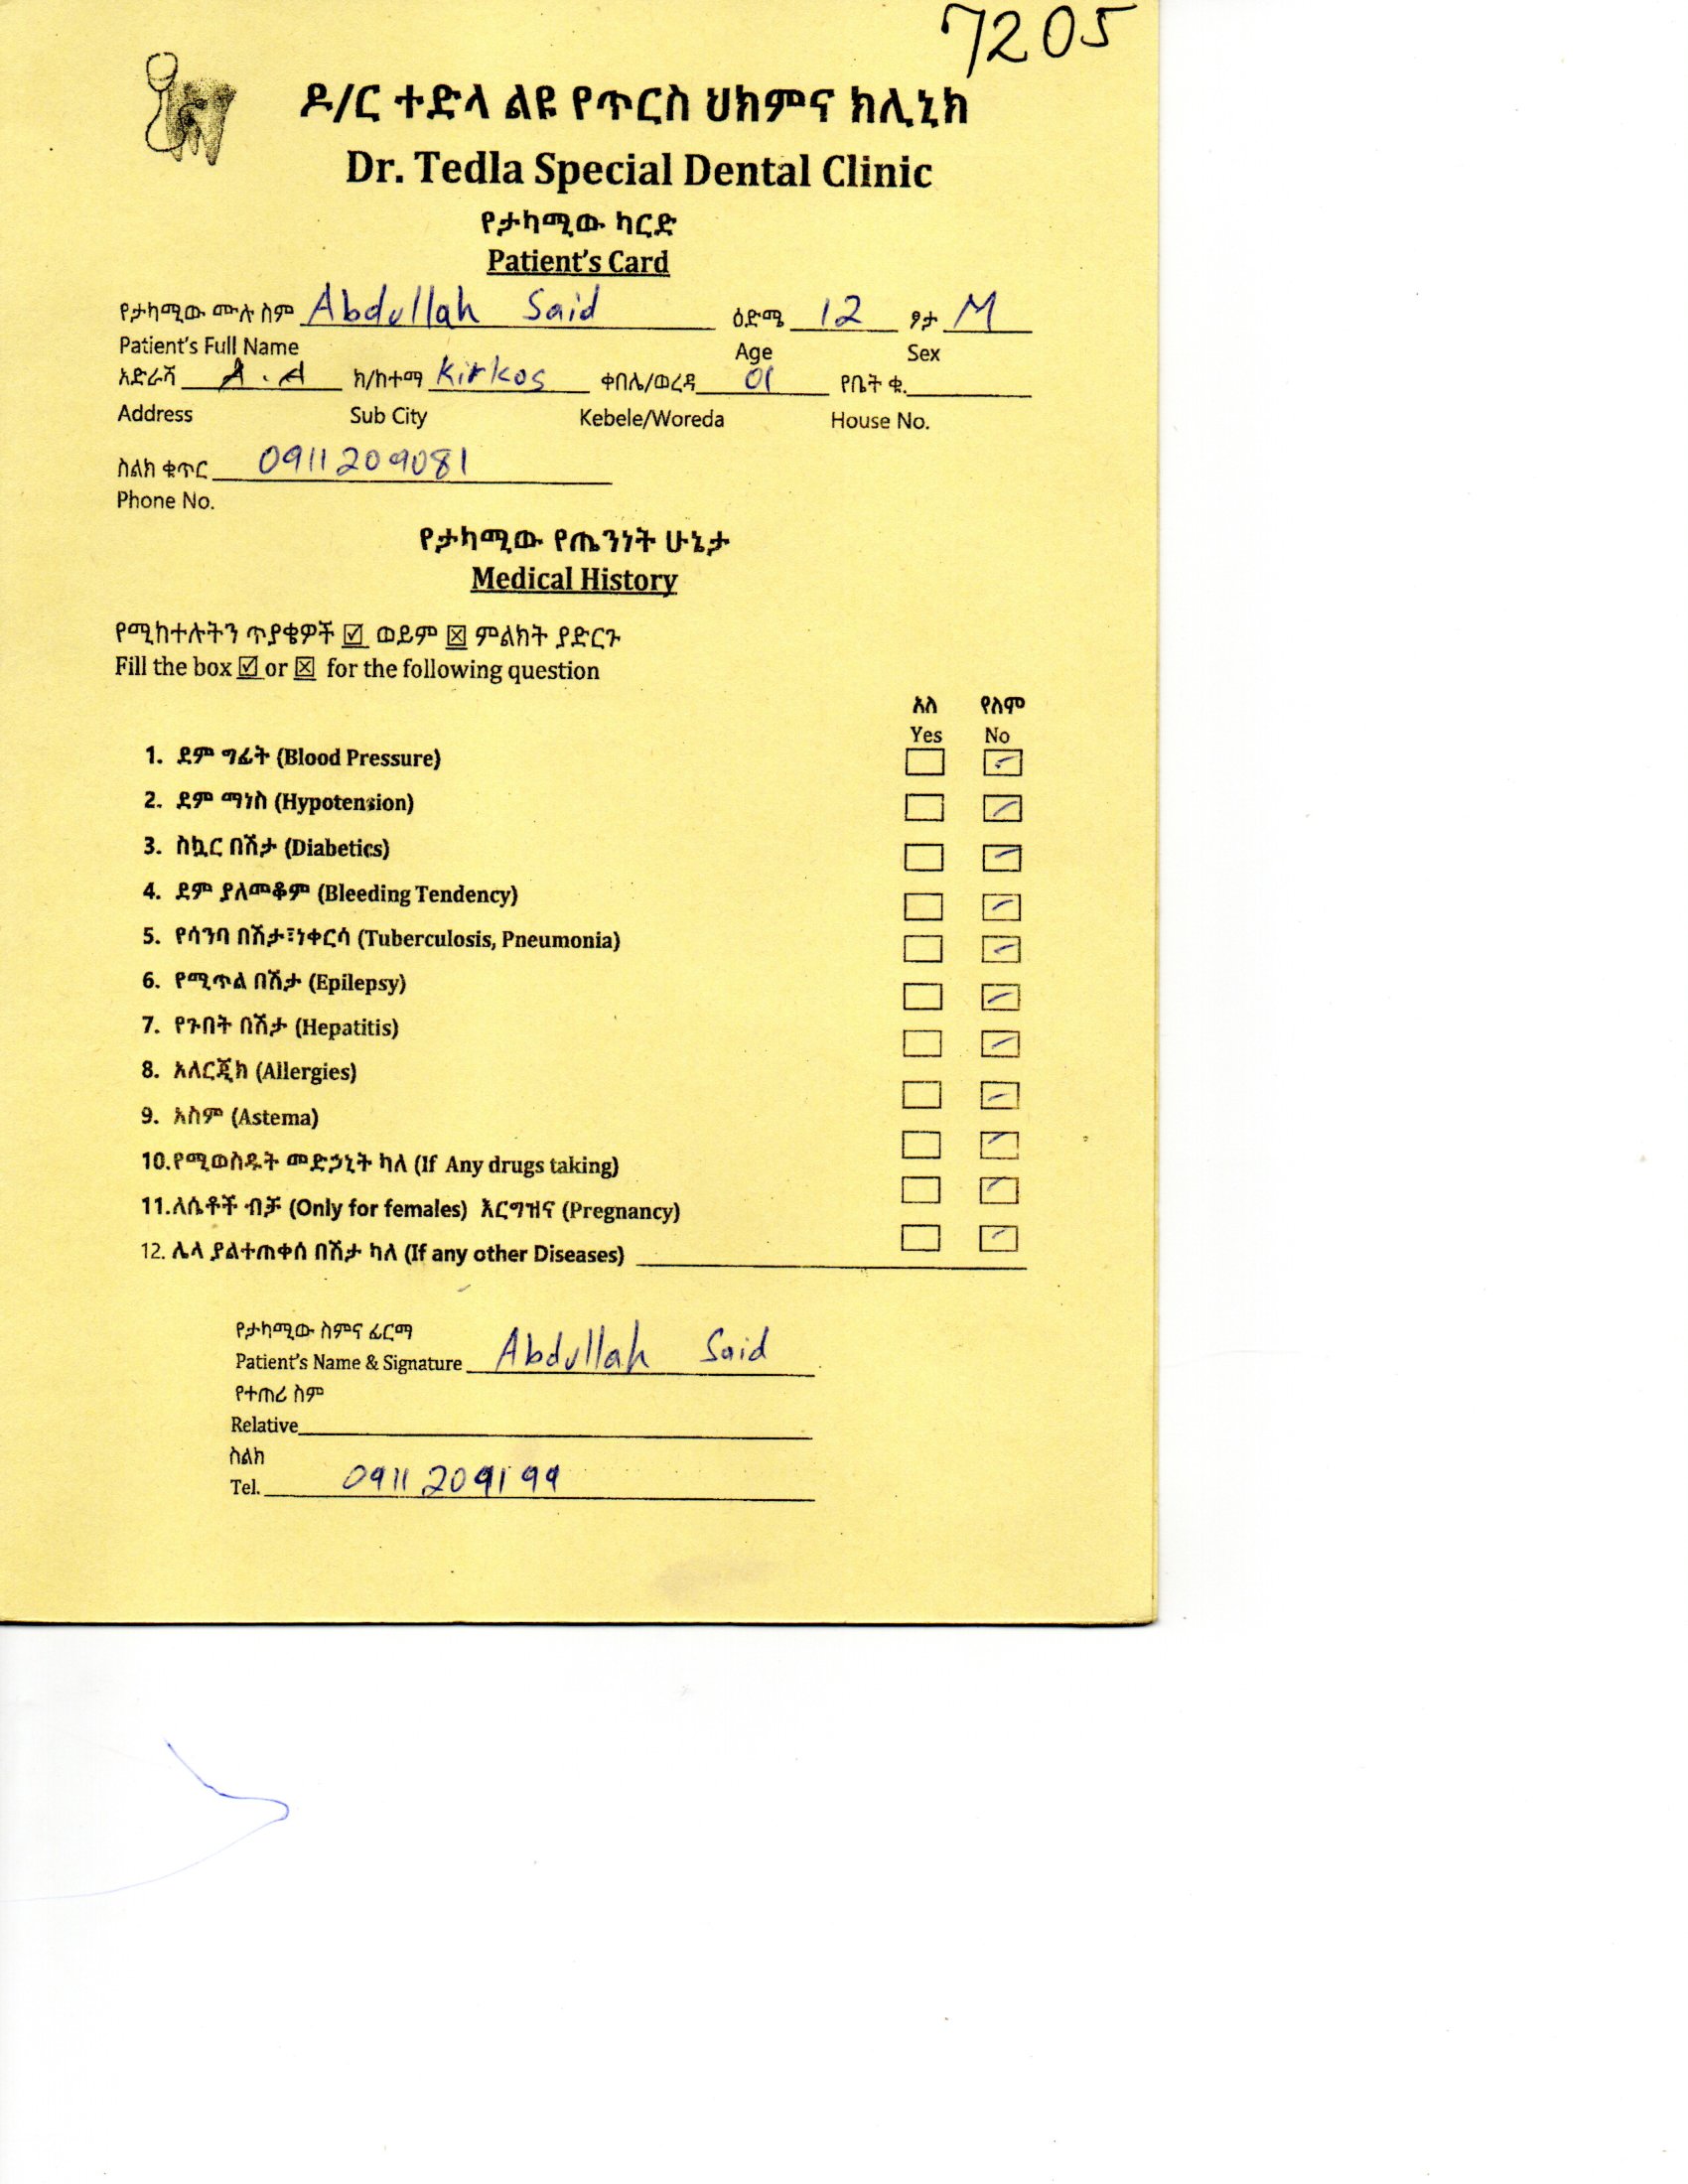 7205
ዶ/ር ተድላ ልዩ የጥርስ ህክምና ክሊኒክ
Dr. Tedla Special Dental Clinic
የታካሚው ካርድ
Patient's Card
የታካሚው ሙሉ ስም Abdullah Said ዕድሜ 12 ፆታ M
Patient's Full Name Age Sex
አድራሻ A.A ክ/ከተማ Kirkos ቀበሌ/ወረዳ 01 የቤት ቁ.
Address Sub City Kebele/Woreda House No.
ስልክ ቁጥር 0911209081
Phone No.
የታካሚው የጤንነት ሁኔታ
Medical History
የሚከተሉትን ጥያቄዎች ☑ ወይም ☒ ምልክት ያድርጉ
Fill the box ☑ or ☒ for the following question
አለ የለም
Yes No
1. ደም ግፊት (Blood Pressure)
2. ደም ማነስ (Hypotension)
3. ስኳር በሽታ (Diabetics)
4. ደም ያለመቆም (Bleeding Tendency)
5. የሳንባ በሽታ፣ነቀርሳ (Tuberculosis, Pneumonia)
6. የሚጥል በሽታ (Epilepsy)
7. የጉበት በሽታ (Hepatitis)
8. አለርጂክ (Allergies)
9. አስም (Astema)
10.የሚወስዱት መድኃኒት ካለ (If Any drugs taking)
11.ለሴቶች ብቻ (Only for females) እርግዝና (Pregnancy)
12. ሌላ ያልተጠቀሰ በሽታ ካለ (If any other Diseases)
የታካሚው ስምና ፊርማ
Patient's Name & Signature Abdullah Said
የተጠሪ ስም
Relative
ስልክ
Tel. 0911209199